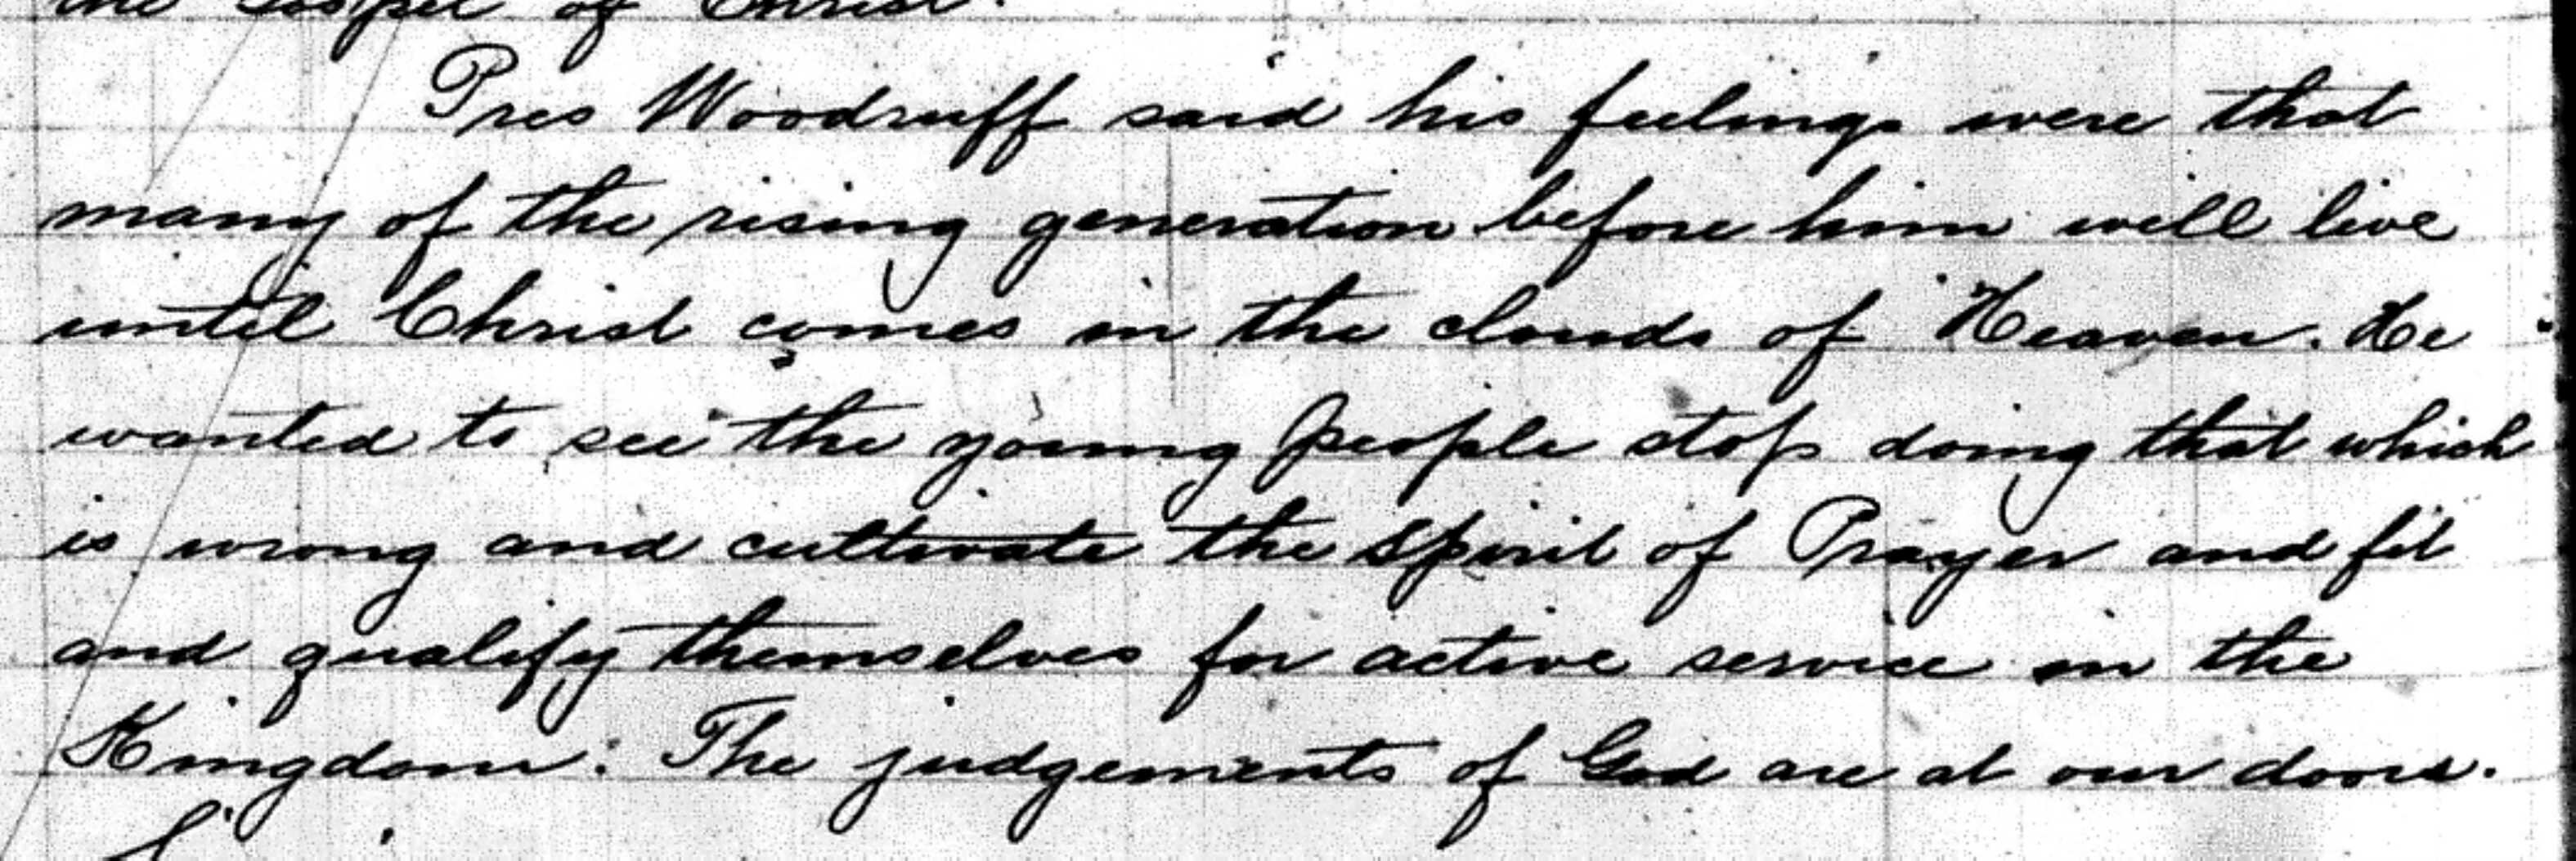 the Gospel of Christ.
Pres Woodruff said his feelings were that
many of the rising generation before him will live
until Christ comes in the clouds of Heaven. He
wanted to see the young people stop doing that which
is wrong and cultivate the spirit of Prayer and fit
and qualify themselves for active service in the
Kingdom. The judgements of God are at our doors.